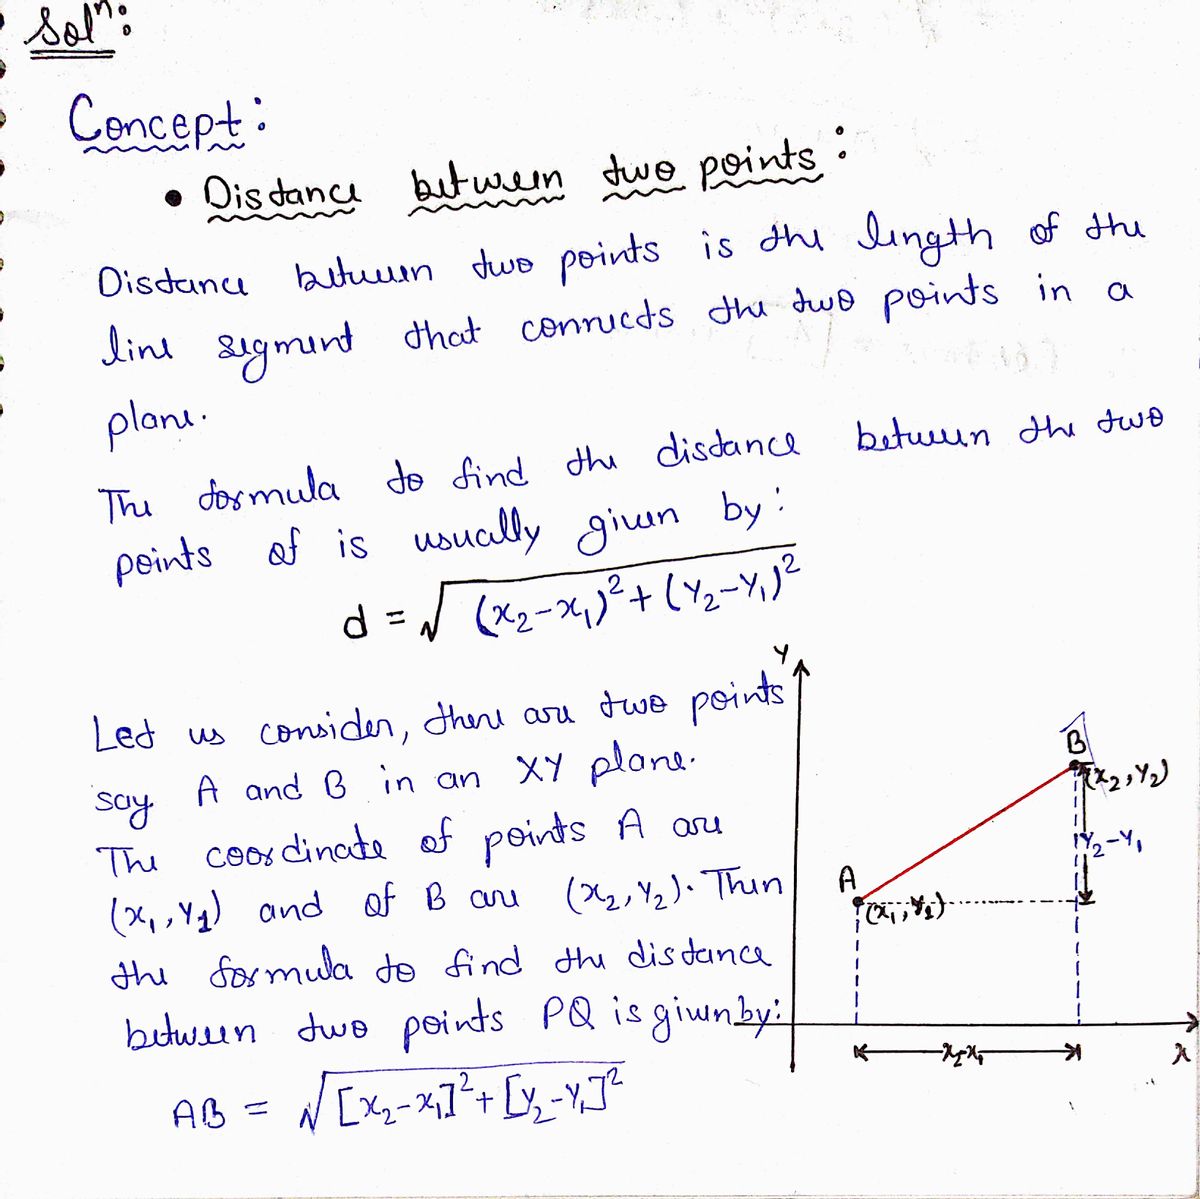 Solⁿ:
Concept:
• Distance between two points:
Distance between two points is the length of the
line segment that connects the two points in a
plane.
The formula to find the distance between the two
points of is usually given by:
d = √(x₂-x₁)²+(y₂-y₁)²
Let us consider, there are two points
say A and B in an XY plane.
The coordinate of points A are
(x₁,y₁) and of B are (x₂,y₂). Then
the formula to find the distance
between two points PQ is given by:
AB = √[x₂-x₁]²+[y₂-y₁]²
Y
B
(x₂,y₂)
y₂-y₁
A
(x₁,y₁)
x₂-x₁
x